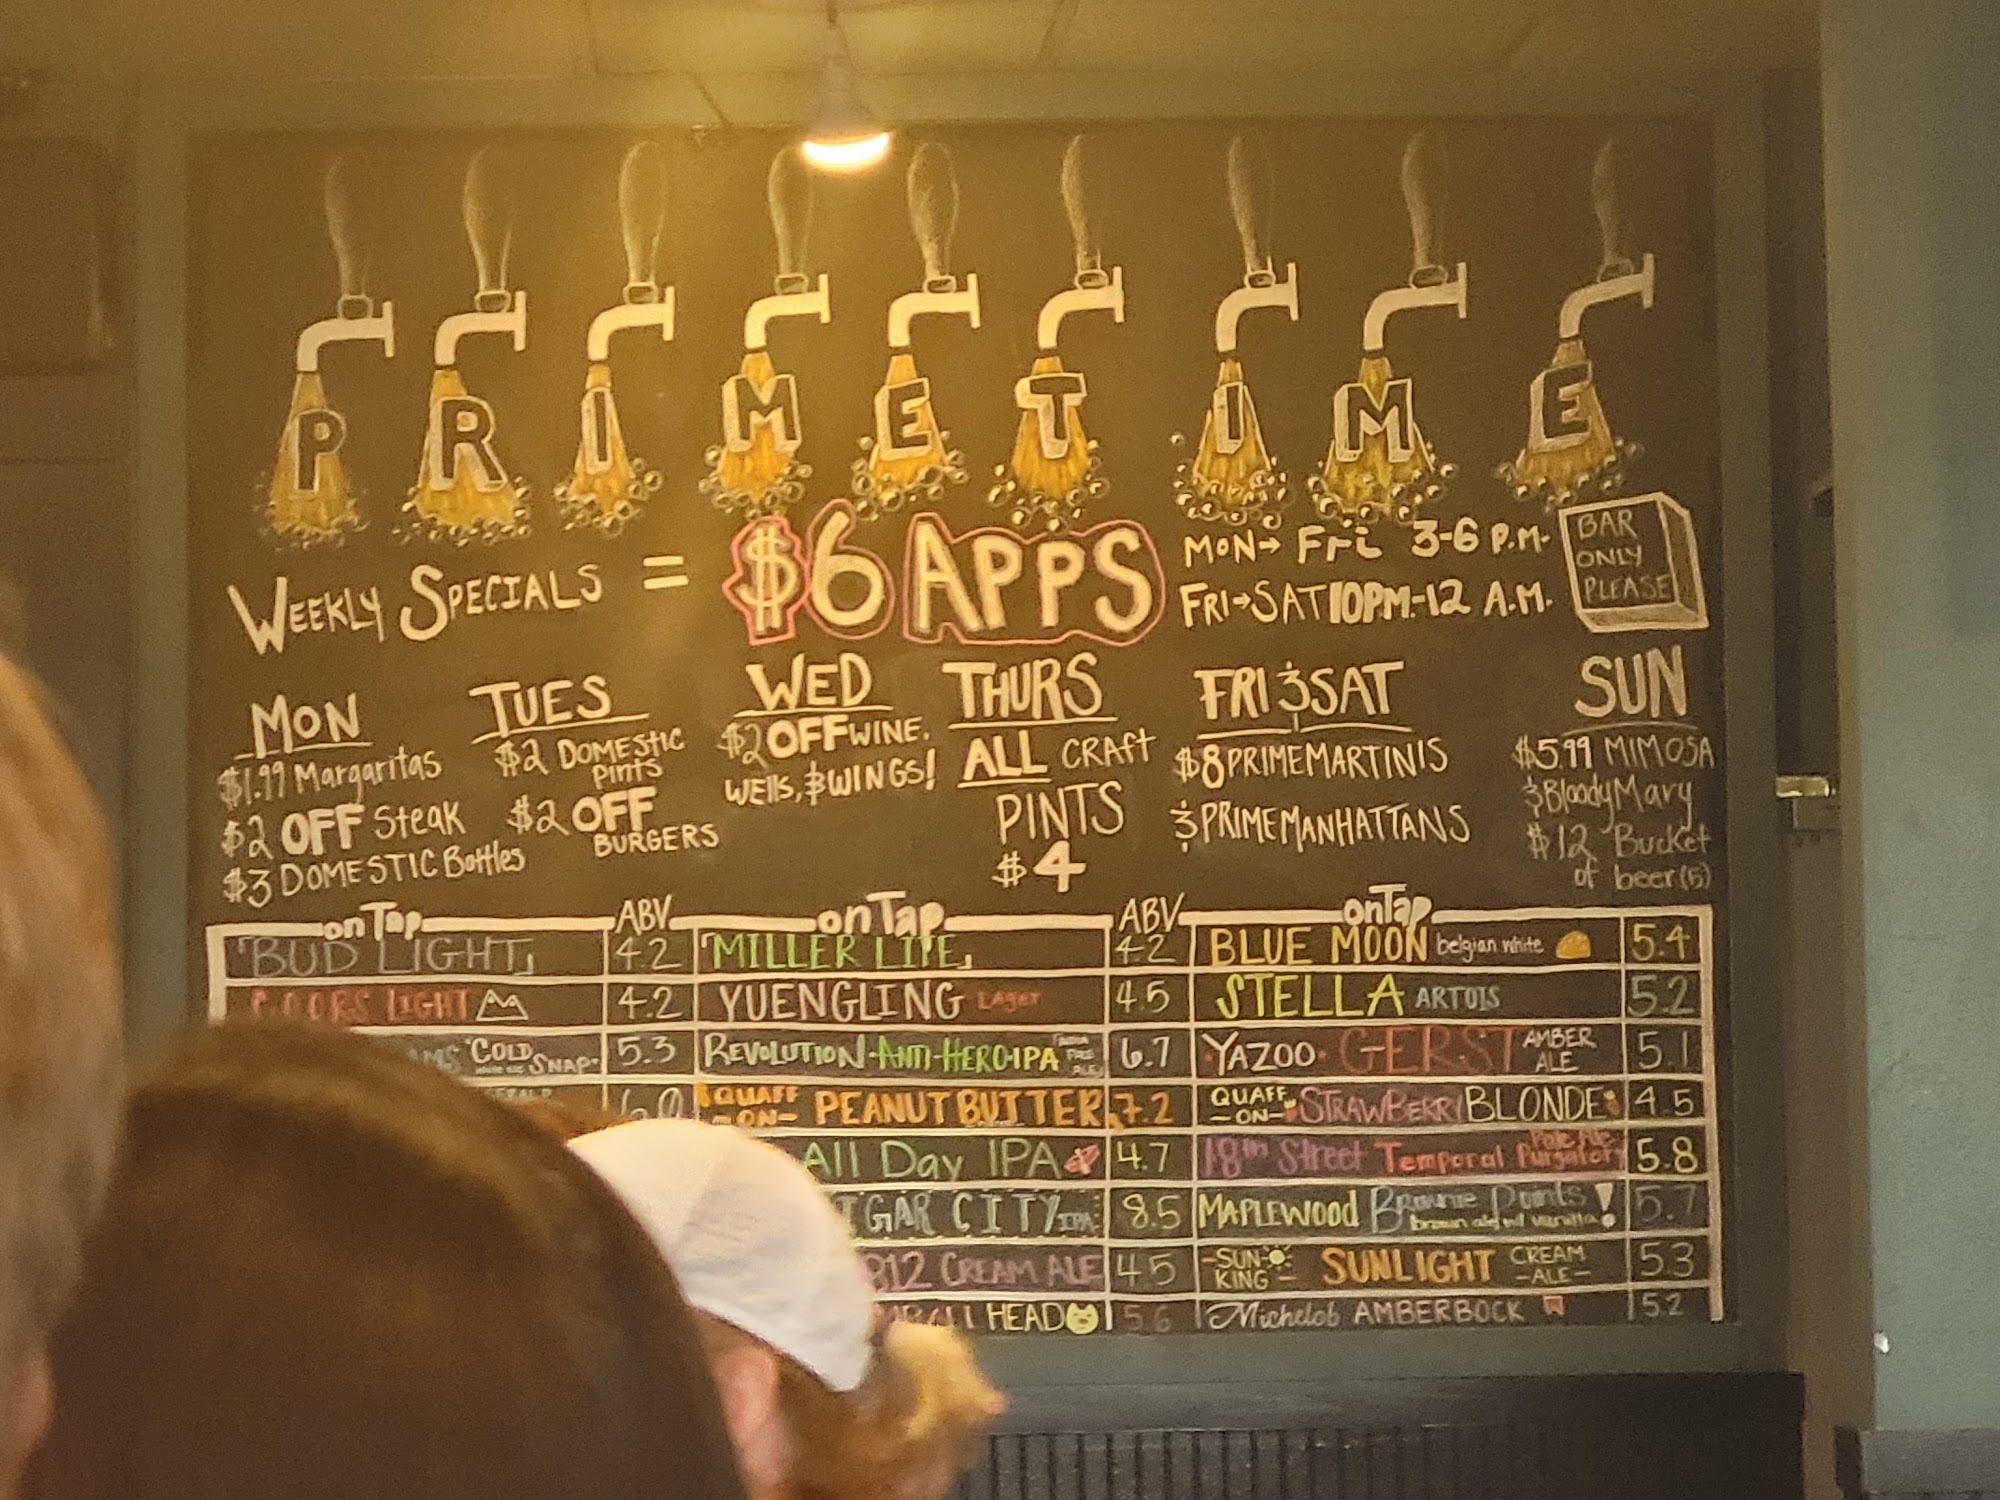 PRIMETIME
WEEKLY SPECIALS = $6 APPS
MON→ Fri 3-6 P.M.
FRI→SAT 10PM.-12 A.M.
BAR
ONLY
PLEASE
MON
$1.99 Margaritas
$2 OFF Steak
$3 DOMESTIC Bottles
TUES
$2 DOMESTIC
pints
$2 OFF
BURGERS
WED
$2 OFF WINE,
WEllS, & WINGS!
THURS
ALL CRAft
PINTS
$4
FRI & SAT
$8 PRIMEMARTINIS
& PRIMEMANHATTANS
SUN
$5.99 MIMOSA
& BloodyMary
$12 Bucket
of beer(5)
onTap ABV
BUD LIGHT 4.2
COORS LIGHT 4.2
COLD SNAP 5.3
6.0
onTap ABV
MILLER LITE 4.2
YUENGLING LAgeR 4.5
REVOLUTION-ANTI-HERO IPA INDIA PALE ALE 6.7
QUAFF -ON- PEANUT BUTTER 7.2
All Day IPA 4.7
IGAR CITY IPA 8.5
312 CREAM ALE 4.5
HEAD 5.6
onTap
BLUE MOON belgian white 5.4
STELLA ARTOIS 5.2
YAZOO GERST AMBER ALE 5.1
QUAFF -ON- STRAWBERRY BLONDE 4.5
18th Street Temporal Purgatory Pale Ale 5.8
MAPLEWOOD Brownie Points! brown ale w/ vanilla 5.7
-SUN KING- SUNLIGHT CREAM -ALE- 5.3
Michelob AMBERBOCK 5.2